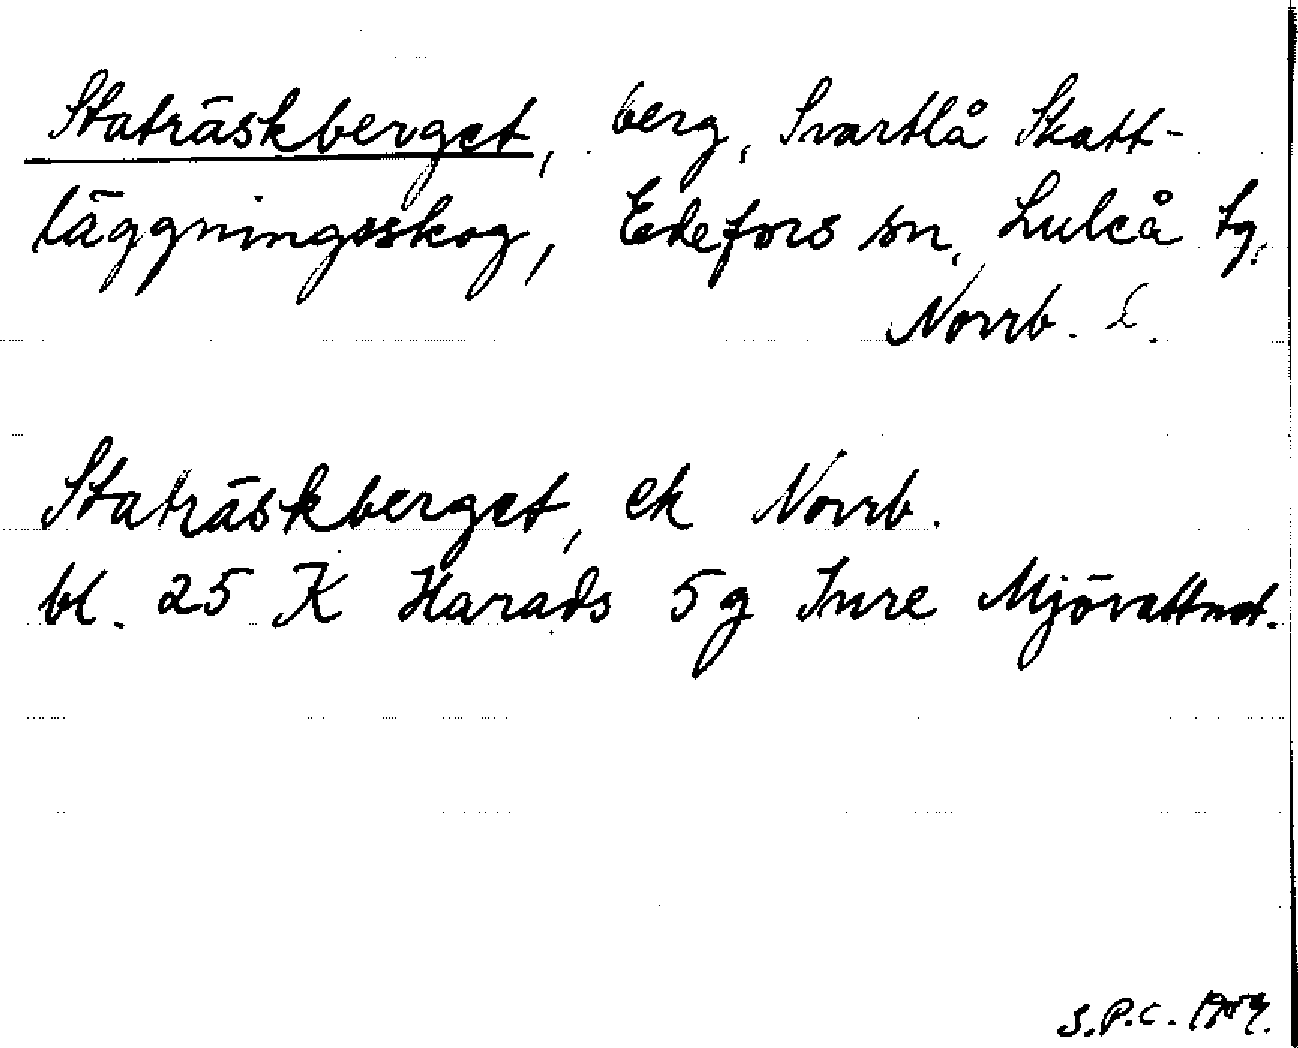 Staträskberget, berg, Svartlå Skatt-
läggningsskog, Edefors sn, Luleå tg,
Norrb. L.
Staträskberget, ek Norrb.
bl. 25 K Harads 5g Inre Mjövattnet.
S.P.C.